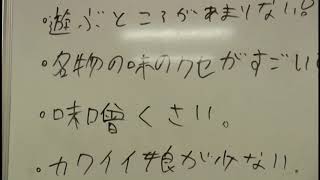 ・遊ぶところがあまりない。
・名物の味のクセがすごい
・味噌くさい。
・カワイイ娘が少ない.